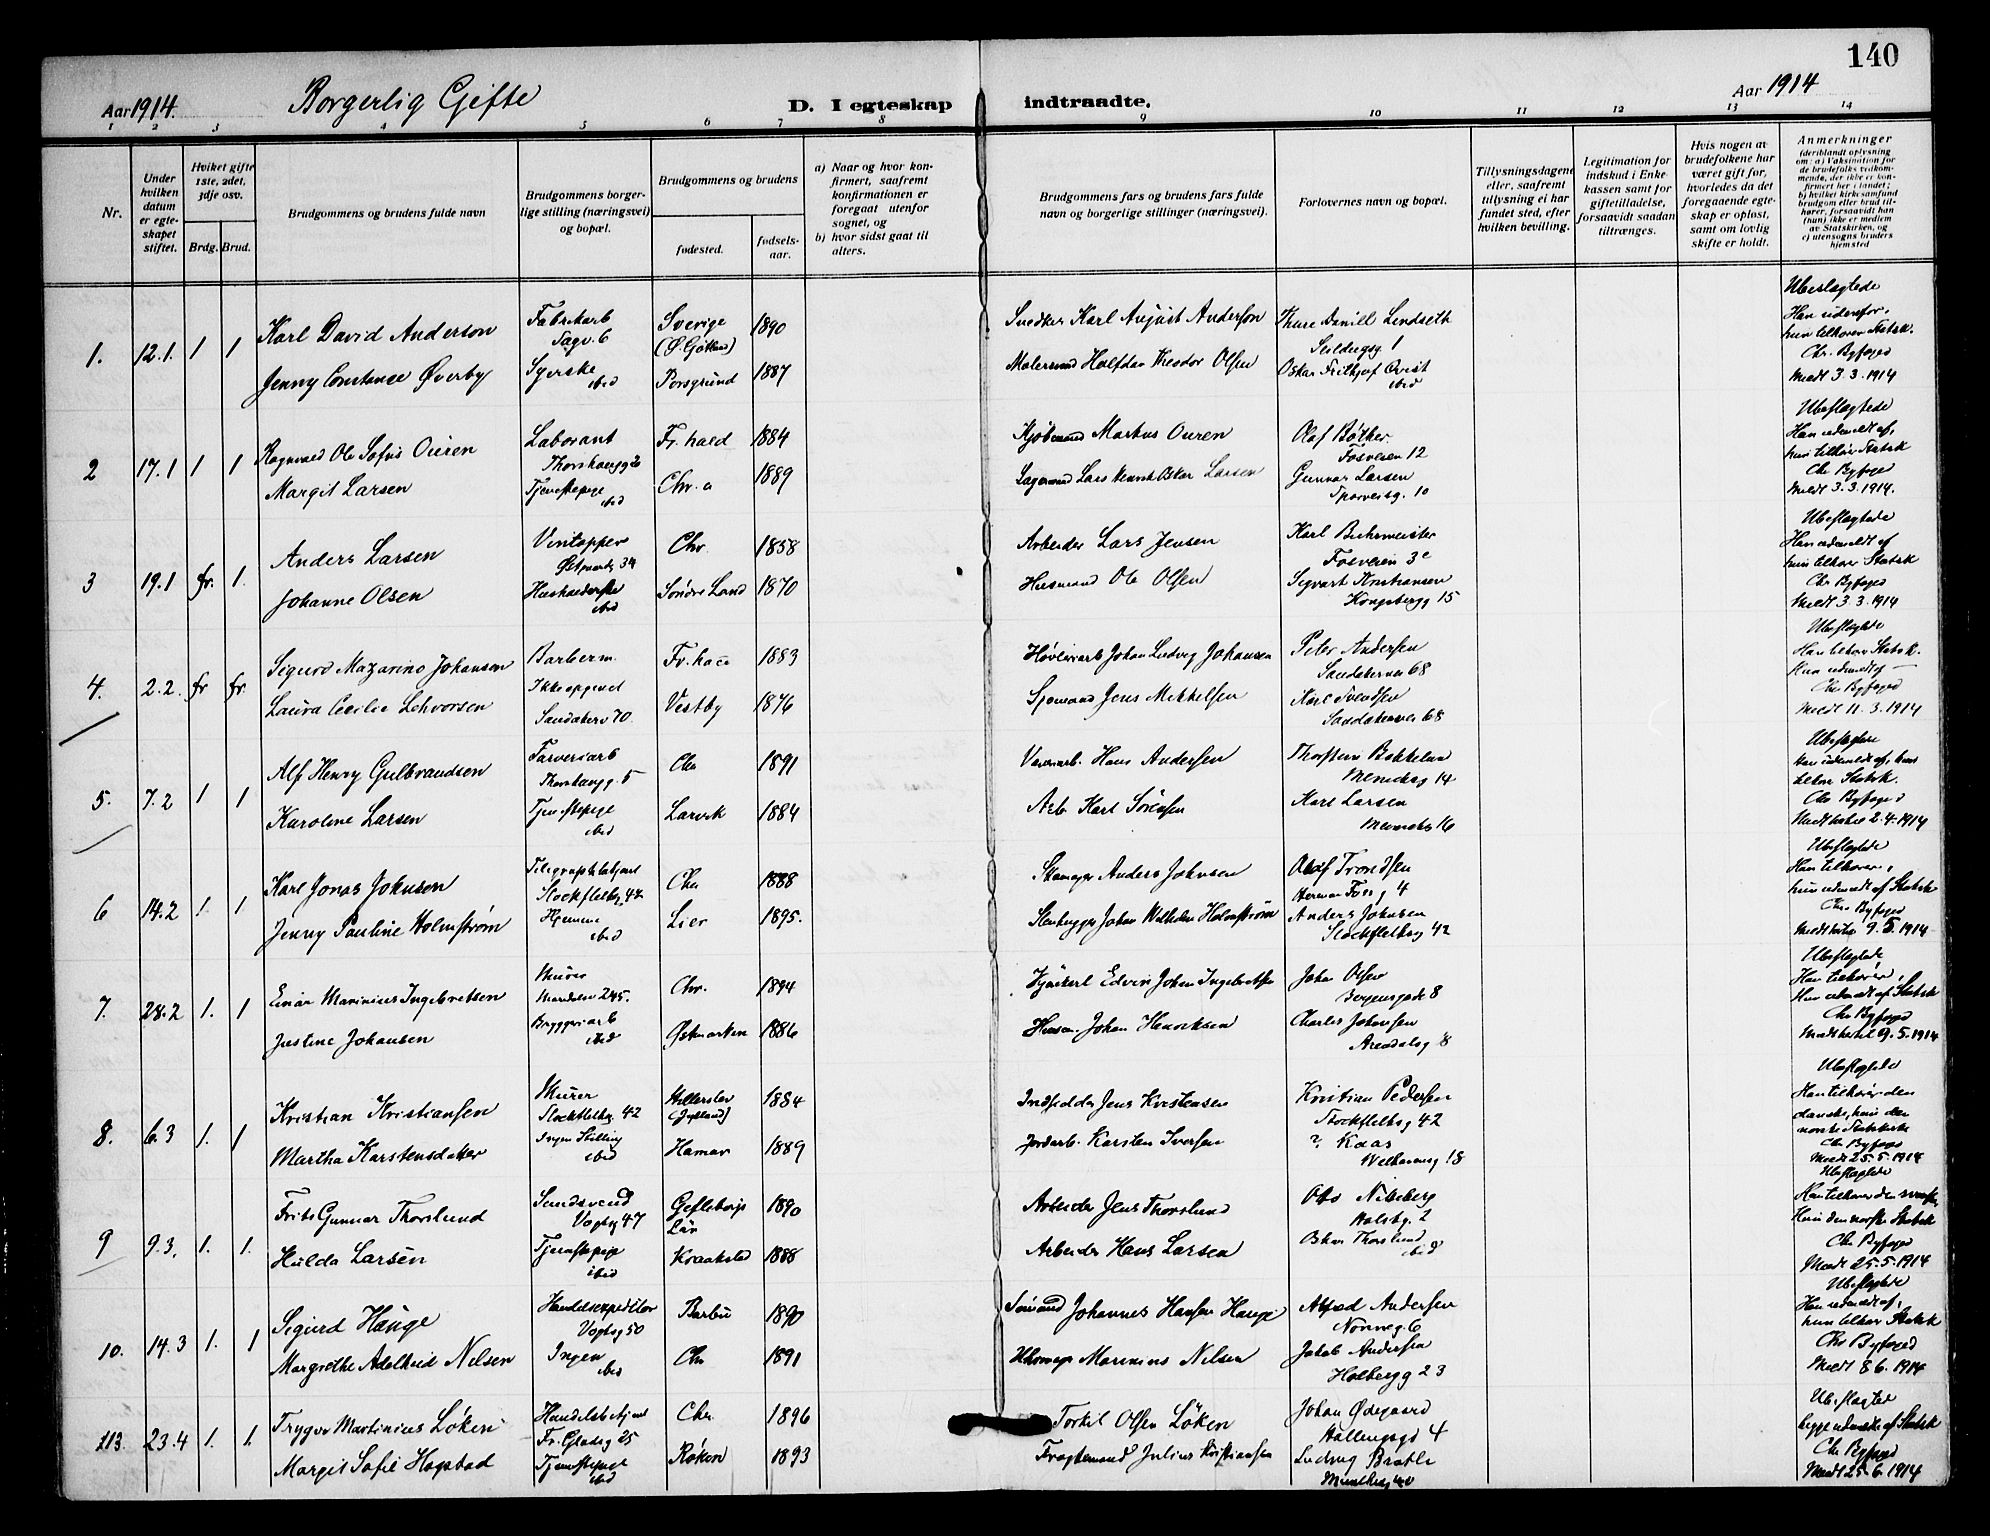 140
Aar 1914. Borgerlig Gifte D. I egteskap indtraadte. Aar 1914
1 2 3 4 5 6 7 8 9 10 11 12 13 14
Nr.
Under hvilken datum er egteskapet stiftet.
Hvilket gifte 1ste, 2det, 3dje osv.
Brdg. Brud.
Brudgommens og brudens fulde navn
Brudgommens borgerlige stilling (næringsvei) og bopæl.
Brudgommens og brudens
fødested. fødselsaar.
a) Naar og hvor konfirmert, saafremt konfirmationen er foregaat utenfor sognet, og
b) hvor sidst gaat til alters.
Brudgommens fars og brudens fars fulde navn og borgerlige stillinger (næringsvei).
Forlovernes navn og bopæl.
Tillysningsdagene eller, saafremt tillysning ei har fundet sted, efter hvilken bevilling.
Legitimation for indskud i Enkekassen samt for giftetilladelse, forsaavidt saadan tiltrænges.
Hvis nogen av brudefolkene har været gift før, hvorledes da det foregaaende egteskap er opløst, samt om lovlig skifte er holdt.
Anmerkninger (deriblandt oplysning om: a) Vaksination for de brudefolks vedkommende, der ikke er konfirmert her i landet; b) hvilket kirkesamfund brudgom eller brud tilhører, forsaavidt han (hun) ikke er medlem av Statskirken, og c) utensogns bruders hjemsted
1. 12.1. 1 1
Karl David Anderson
Fabrikarb
Sagv. 6
Sverige
(Ø. Götland)
1890
Snedker Karl August Anderson
Thure Daniel Lindseth
1
Ubeslægtede
Han udenfor,
hun tilhører Statsk.
Chr. Byfoged
Medt 3.3.1914
Jenny Constance Øverby
Syerske
ibid
Porsgrund
1887
Malersvend Halfdan Theodor Olsen
Oskar Frithjof Qvist
ibid
2 17.1 1 1
Ragnvald Ole Sofus Ouren
Laborant
Fr. hald
1884
Kjøbmand Martus Ouren
Olaf Bøther
Fosveien 12
Ubeslægtede
Han udmeldt af,
hun tilhør Statsk
Chr Byfoged
Medt 3.3.1914.
Margit Larsen
Tjenestepige
ibid
Chr. a
1889
Lagermand Lars Henrik Oskar Larsen
Gunnar Larsen
Sporveisg. 10
3 19.1 fr. 1.
Anders Larsen
Vintapper
34
Chr.
1858
Arbeider Lars Jensen
Karl Buhrmeister
Fosveien 3c
Ubeslægtede
Han udmeldt af
hun tilhører Statsk
Chr Byfoged
Medt 3.3.1914
Johanne Olsen
Husholderske
ibid
Søndre Land
1870
Husmand Ole Olsen
Sigvart Kristiansen
Kongsbergg 15
4. 2.2. fr fr.
Sigurd Mazarino Johansen
Barberm.
Fr. hald
1883
Høvleriarb Johan Ludvig Johansen
Peter Andersen
Sandakerveien 68
Ubeslægtede
Han tilhører Statsk.
Hun udmeldt af —
Chr Byfoged
Medt 11.3.1914
Laura Cecilie Lehvorsen
Ikke opgivet
Sandakerv 70.
Vestby
1876
Sjømand Jens Mikkelsen
Karl Svendsen
Sandakerveien 68
5. 7.2 1 1
Alf Henry Gulbrandsen
Farveriarb
5
Chr
1891
Hans Andersen
Thorstein Bakkelien
14
Ubeslægtede
Han udmeldt af, hun
tilhør Statsk.
Chr Byfoged
2.4.1914
Karoline Larsen
Tjenestepige
ibid
Larvik
1884
Arb Karl Sørensen
Karl Larsen
16
6 14.2 1. 1
Karl Jonas Johnson
Telegrafarbeider
Stockflethsg. 42
Chr
1888
Skomager Anders Johnsen
Olaf Trondsen
Herman Fossg 4
Ubeslægtede
Han tilhører,
hun udmeldt af Statsk
Chr Byfoged
9.5.1914
Jenny Pauline Holmstrøm
Hjemme
ibid
Lier
1895.
Stenhugger Johan Wilhelm Holmstrøm
Anders Johnsen
Stockflethsg 42
7. 28.2 1. 1
Einar Marinius Ingebretsen
Murer
Maridalsv 245.
Chr.
1894
Edvin Johan Ingebretsen
Johan Olsen
Bergensgade 8
Ubeslægtede
Han tilhører,
Hun udmeldt af Statsk
Chr Byfoged
9.5.1914
Justine Johansen
Bryggeriarb
ibid
Østmarken
1886
Husm. Johan Henriksen
Charles Johansen
Arendalsg 8
8. 6.3 1. 1
Kristian Kristiansen
Murer
Stockflethsg. 42
Hillerslev
(Jylland)
1884
Indsidder Jens Kristensen
Kristian Pedersen
Stockflethsg 42
Ubeslægtede
Han tilhører den
danske, hun den
norske Statskirke
Chr Byfoged
Medt 25.5.1914
Martha Karstensdatter
Ingen Stilling
ibid
Hamar
1889
Jordarb. Karsten Iversen
? Kaas
Welhavensg 18
9 9.3. 1. 1.
Frits Gunnar Thorslund
Smedsvend
Vogtsg 47
Gefleborgs
Län
1890
Arbeider Jens Thorslund
Otto Nibeberg
2
Ubeslægtede
Han tilhører den svenske,
Hun den norske Statsk
Chr Byfoged
Medt 25.5.1914
Hulda Larsen
Tjenestepige
ibid
Kraakstad
1888
Arbeider Hans Larsen
Oskar Thorslund
ibid
10. 14.3 1. 1
Sigurd Hauge
Handelsexpeditør
Vogtsg 50
Barbu
1890
Sømand Johannes Hansen Hauge
Alfred Andersen
Norneg. 6
Ubeslægtede
Han udmeldt af,
hun tilhør Statsk
Chr Byfoged
Medt 8.6.1914
Margrethe Adelheid Nilsen
Ingen
ibid
Chr
1891
Skomager Marinius Nilsen
Jakob Andersen
Holbergg 23
113. 23.4 1. 1.
Trygve Martinius Løken
Handelsbetjent
25
Chr.
1896
Torkil Olsen Løken
Johan Ødegaard
Hallingsgd 4
Ubeslægtet
begge udmeldt af Statsk
Chr Byfoged
Medt 25.6.1914
Margit Sofie Hogstad
Tjenestepige
ibid
Røken
1893
Fragtemand Julius Kristiansen
Ludvig Bratli